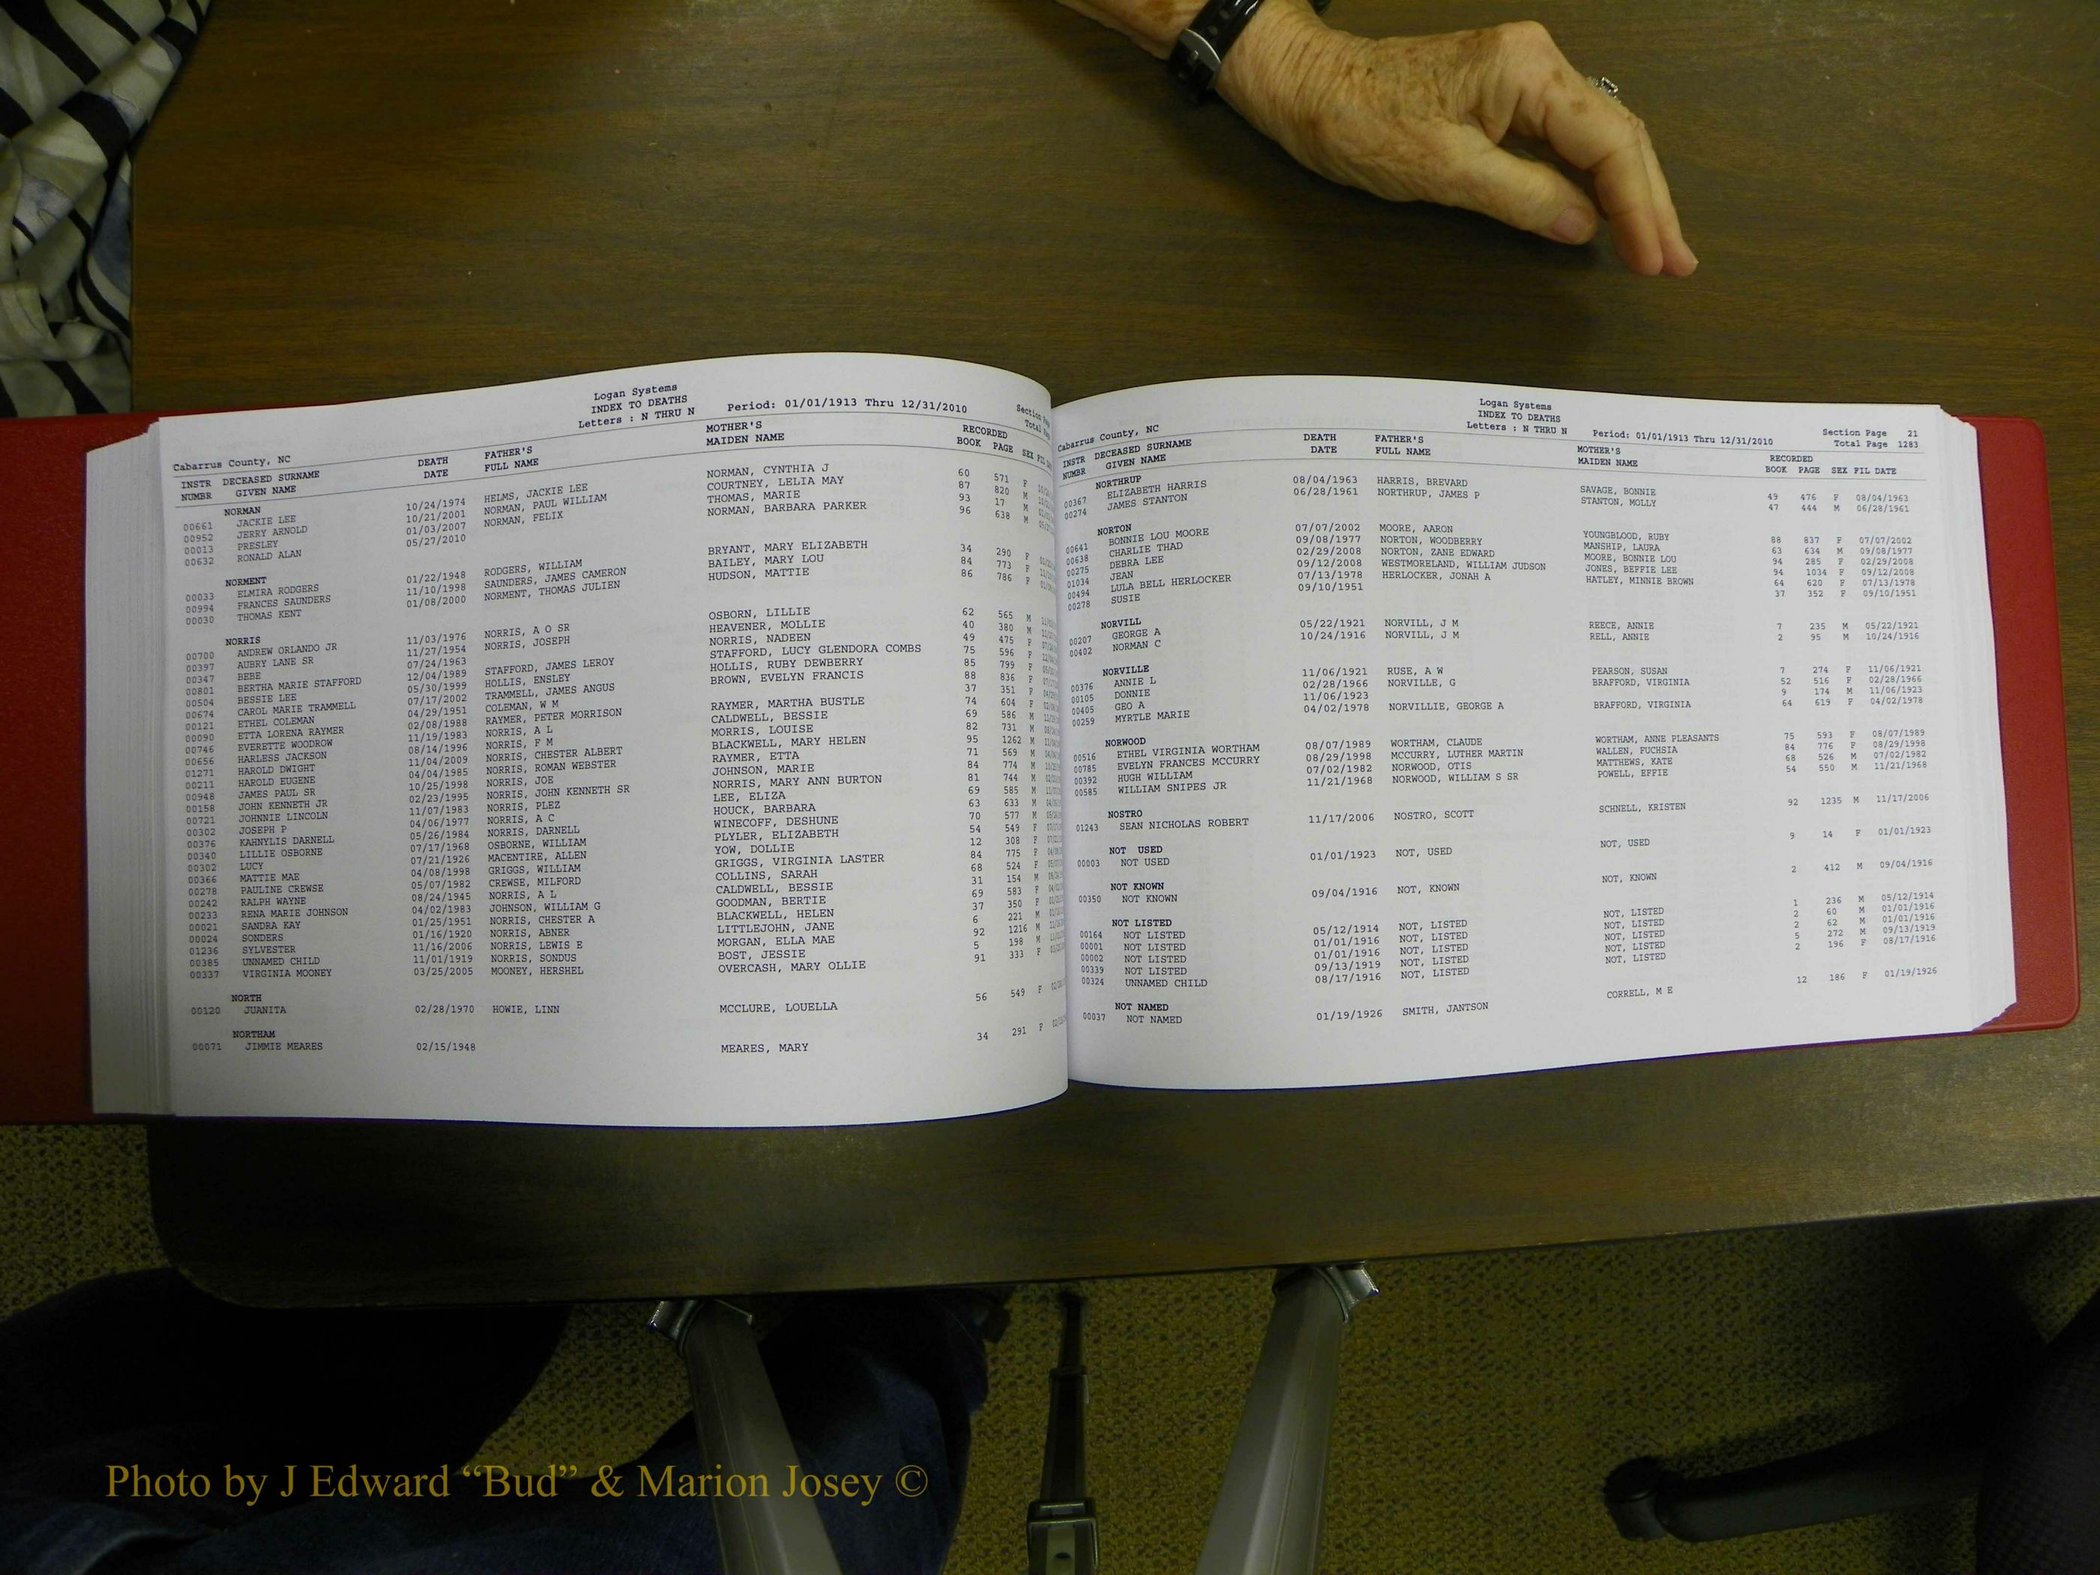 Logan Systems
INDEX TO DEATHS
Letters : N THRU N Period: 01/01/1913 Thru 12/31/2010
Cabarrus County, NC
INSTR DECEASED SURNAME DEATH FATHER'S MOTHER'S RECORDED
NUMBR GIVEN NAME DATE FULL NAME MAIDEN NAME BOOK PAGE SEX FIL
NORMAN
00661 JACKIE LEE 10/24/1974 HELMS, JACKIE LEE NORMAN, CYNTHIA J 60 571 F
00952 JERRY ARNOLD 10/21/2001 NORMAN, PAUL WILLIAM COURTNEY, LELIA MAY 87 820 M
00013 PRESLEY 01/03/2007 NORMAN, FELIX THOMAS, MARIE 93 17 M
00632 RONALD ALAN 05/27/2010 NORMAN, BARBARA PARKER 96 638 M
NORMENT
00033 ELMIRA RODGERS 01/22/1948 RODGERS, WILLIAM BRYANT, MARY ELIZABETH 34 290 F
00994 FRANCES SAUNDERS 11/10/1998 SAUNDERS, JAMES CAMERON BAILEY, MARY LOU 84 773 F
00030 THOMAS KENT 01/08/2000 NORMENT, THOMAS JULIEN HUDSON, MATTIE 86 786 F
NORRIS
00700 ANDREW ORLANDO JR 11/03/1976 NORRIS, A O SR OSBORN, LILLIE 62 565 M
00397 AUBRY LANE SR 11/27/1954 NORRIS, JOSEPH HEAVENER, MOLLIE 40 380 M
00347 BEBE 07/24/1963 NORRIS, NADEEN 49 475 F
00801 BERTHA MARIE STAFFORD 12/04/1989 STAFFORD, JAMES LEROY STAFFORD, LUCY GLENDORA COMBS 75 596 F
00504 BESSIE LEE 05/30/1999 HOLLIS, ENSLEY HOLLIS, RUBY DEWBERRY 85 799 F
00674 CAROL MARIE TRAMMELL 07/17/2002 TRAMMELL, JAMES ANGUS BROWN, EVELYN FRANCIS 88 836 F
00121 ETHEL COLEMAN 04/29/1951 COLEMAN, W M 37 351 F
00090 ETTA LORENA RAYMER 02/08/1988 RAYMER, PETER MORRISON RAYMER, MARTHA BUSTLE 74 604 F
00746 EVERETTE WOODROW 11/19/1983 NORRIS, A L CALDWELL, BESSIE 69 586 M
00656 HARLESS JACKSON 08/14/1996 NORRIS, F M MORRIS, LOUISE 82 731 M
01271 HAROLD DWIGHT 11/04/2009 NORRIS, CHESTER ALBERT BLACKWELL, MARY HELEN 95 1262 M
00211 HAROLD EUGENE 04/04/1985 NORRIS, ROMAN WEBSTER RAYMER, ETTA 71 569 M
00948 JAMES PAUL SR 10/25/1998 NORRIS, JOE JOHNSON, MARIE 84 774 M
00158 JOHN KENNETH JR 02/23/1995 NORRIS, JOHN KENNETH SR NORRIS, MARY ANN BURTON 81 744 M
00721 JOHNNIE LINCOLN 11/07/1983 NORRIS, PLEZ LEE, ELIZA 69 585 M
00302 JOSEPH P 04/06/1977 NORRIS, A C HOUCK, BARBARA 63 633 M
00376 KAHNYLIS DARNELL 05/26/1984 NORRIS, DARNELL WINECOFF, DESHUNE 70 577 M
00340 LILLIE OSBORNE 07/17/1968 OSBORNE, WILLIAM PLYLER, ELIZABETH 54 549 F
00302 LUCY 07/21/1926 MACENTIRE, ALLEN YOW, DOLLIE 12 308 F
00366 MATTIE MAE 04/08/1998 GRIGGS, WILLIAM GRIGGS, VIRGINIA LASTER 84 775 F
00278 PAULINE CREWSE 05/07/1982 CREWSE, MILFORD COLLINS, SARAH 68 524 F
00242 RALPH WAYNE 08/24/1945 NORRIS, A L CALDWELL, BESSIE 31 154 M
00233 RENA MARIE JOHNSON 04/02/1983 JOHNSON, WILLIAM G GOODMAN, BERTIE 69 583 F
00021 SANDRA KAY 01/25/1951 NORRIS, CHESTER A BLACKWELL, HELEN 37 350 F
00024 SONDERS 01/16/1920 NORRIS, ABNER LITTLEJOHN, JANE 6 221 M
01236 SYLVESTER 11/16/2006 NORRIS, LEWIS E MORGAN, ELLA MAE 92 1216 M
00385 UNNAMED CHILD 11/01/1919 NORRIS, SONDUS BOST, JESSIE 5 198 M
00337 VIRGINIA MOONEY 03/25/2005 MOONEY, HERSHEL OVERCASH, MARY OLLIE 91 333 F
NORTH
00120 JUANITA 02/28/1970 HOWIE, LINN MCCLURE, LOUELLA 56 549 F
NORTHAM
00071 JIMMIE MEARES 02/15/1948 MEARES, MARY 34 291 F
Logan Systems
INDEX TO DEATHS
Letters : N THRU N Period: 01/01/1913 Thru 12/31/2010 Section Page 21
Cabarrus County, NC Total Page 1283
INSTR DECEASED SURNAME DEATH FATHER'S MOTHER'S RECORDED
NUMBR GIVEN NAME DATE FULL NAME MAIDEN NAME BOOK PAGE SEX FIL DATE
NORTHRUP
00367 ELIZABETH HARRIS 08/04/1963 HARRIS, BREVARD SAVAGE, BONNIE 49 476 F 08/04/1963
00274 JAMES STANTON 06/28/1961 NORTHRUP, JAMES P STANTON, MOLLY 47 444 M 06/28/1961
NORTON
00641 BONNIE LOU MOORE 07/07/2002 MOORE, AARON YOUNGBLOOD, RUBY 88 837 F 07/07/2002
00638 CHARLIE THAD 09/08/1977 NORTON, WOODBERRY MANSHIP, LAURA 63 634 M 09/08/1977
00275 DEBRA LEE 02/29/2008 NORTON, ZANE EDWARD MOORE, BONNIE LOU 94 285 F 02/29/2008
01034 JEAN 09/12/2008 WESTMORELAND, WILLIAM JUDSON JONES, BEFFIE LEE 94 1034 F 09/12/2008
00494 LULA BELL HERLOCKER 07/13/1978 HERLOCKER, JONAH A HATLEY, MINNIE BROWN 64 620 F 07/13/1978
00278 SUSIE 09/10/1951 37 352 F 09/10/1951
NORVILL
00207 GEORGE A 05/22/1921 NORVILL, J M REECE, ANNIE 7 235 M 05/22/1921
00402 NORMAN C 10/24/1916 NORVILL, J M RELL, ANNIE 2 95 M 10/24/1916
NORVILLE
00376 ANNIE L 11/06/1921 RUSE, A W PEARSON, SUSAN 7 274 F 11/06/1921
00105 DONNIE 02/28/1966 NORVILLE, G BRAFFORD, VIRGINIA 52 516 F 02/28/1966
00405 GEO A 11/06/1923 9 174 M 11/06/1923
00259 MYRTLE MARIE 04/02/1978 NORVILLIE, GEORGE A BRAFFORD, VIRGINIA 64 619 F 04/02/1978
NORWOOD
00516 ETHEL VIRGINIA WORTHAM 08/07/1989 WORTHAM, CLAUDE WORTHAM, ANNE PLEASANTS 75 593 F 08/07/1989
00785 EVELYN FRANCES MCCURRY 08/29/1998 MCCURRY, LUTHER MARTIN WALLEN, FUCHSIA 84 776 F 08/29/1998
00392 HUGH WILLIAM 07/02/1982 NORWOOD, OTIS MATTHEWS, KATE 68 526 M 07/02/1982
00585 WILLIAM SNIPES JR 11/21/1968 NORWOOD, WILLIAM S SR POWELL, EFFIE 54 550 M 11/21/1968
NOSTRO
01243 SEAN NICHOLAS ROBERT 11/17/2006 NOSTRO, SCOTT SCHNELL, KRISTEN 92 1235 M 11/17/2006
NOT USED
00003 NOT USED 01/01/1923 NOT, USED NOT, USED 9 14 F 01/01/1923
NOT KNOWN
00350 NOT KNOWN 09/04/1916 NOT, KNOWN NOT, KNOWN 2 412 M 09/04/1916
NOT LISTED
00164 NOT LISTED 05/12/1914 NOT, LISTED NOT, LISTED 1 236 M 05/12/1914
00001 NOT LISTED 01/01/1916 NOT, LISTED NOT, LISTED 2 60 M 01/01/1916
00002 NOT LISTED 01/01/1916 NOT, LISTED NOT, LISTED 2 62 M 01/01/1916
00339 NOT LISTED 09/13/1919 NOT, LISTED NOT, LISTED 5 272 M 09/13/1919
00324 UNNAMED CHILD 08/17/1916 NOT, LISTED NOT, LISTED 2 196 F 08/17/1916
NOT NAMED
00037 NOT NAMED 01/19/1926 SMITH, JANTSON CORRELL, M E 12 186 F 01/19/1926
Photo by J Edward “Bud” & Marion Josey ©